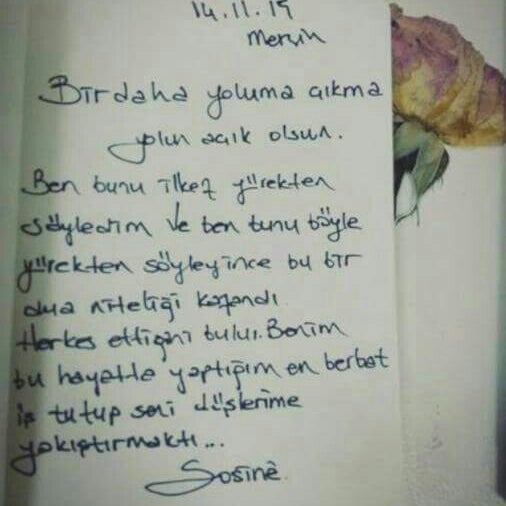 14.11.19
Mersin
Bir daha yoluma çıkma
yolun açık olsun.
Ben bunu ilkez yürekten
söyledim ve ben bunu böyle
yürekten söyleyince bu bir
dua niteliği kazandı
Herkes ettiğini bulur. Benim
bu hayatta yaptığım en berbat
iş tutup seni düşlerime
yakıştırmaktı...
Sosinè